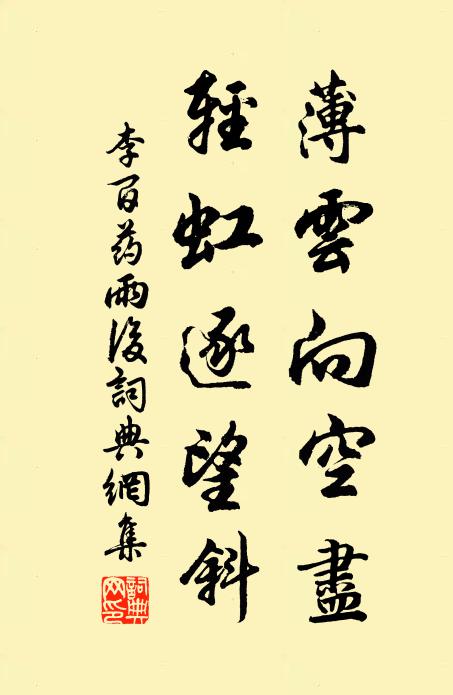 薄雲向空盡
輕虹逐望斜
李百药雨後詞典網集
詞典網印